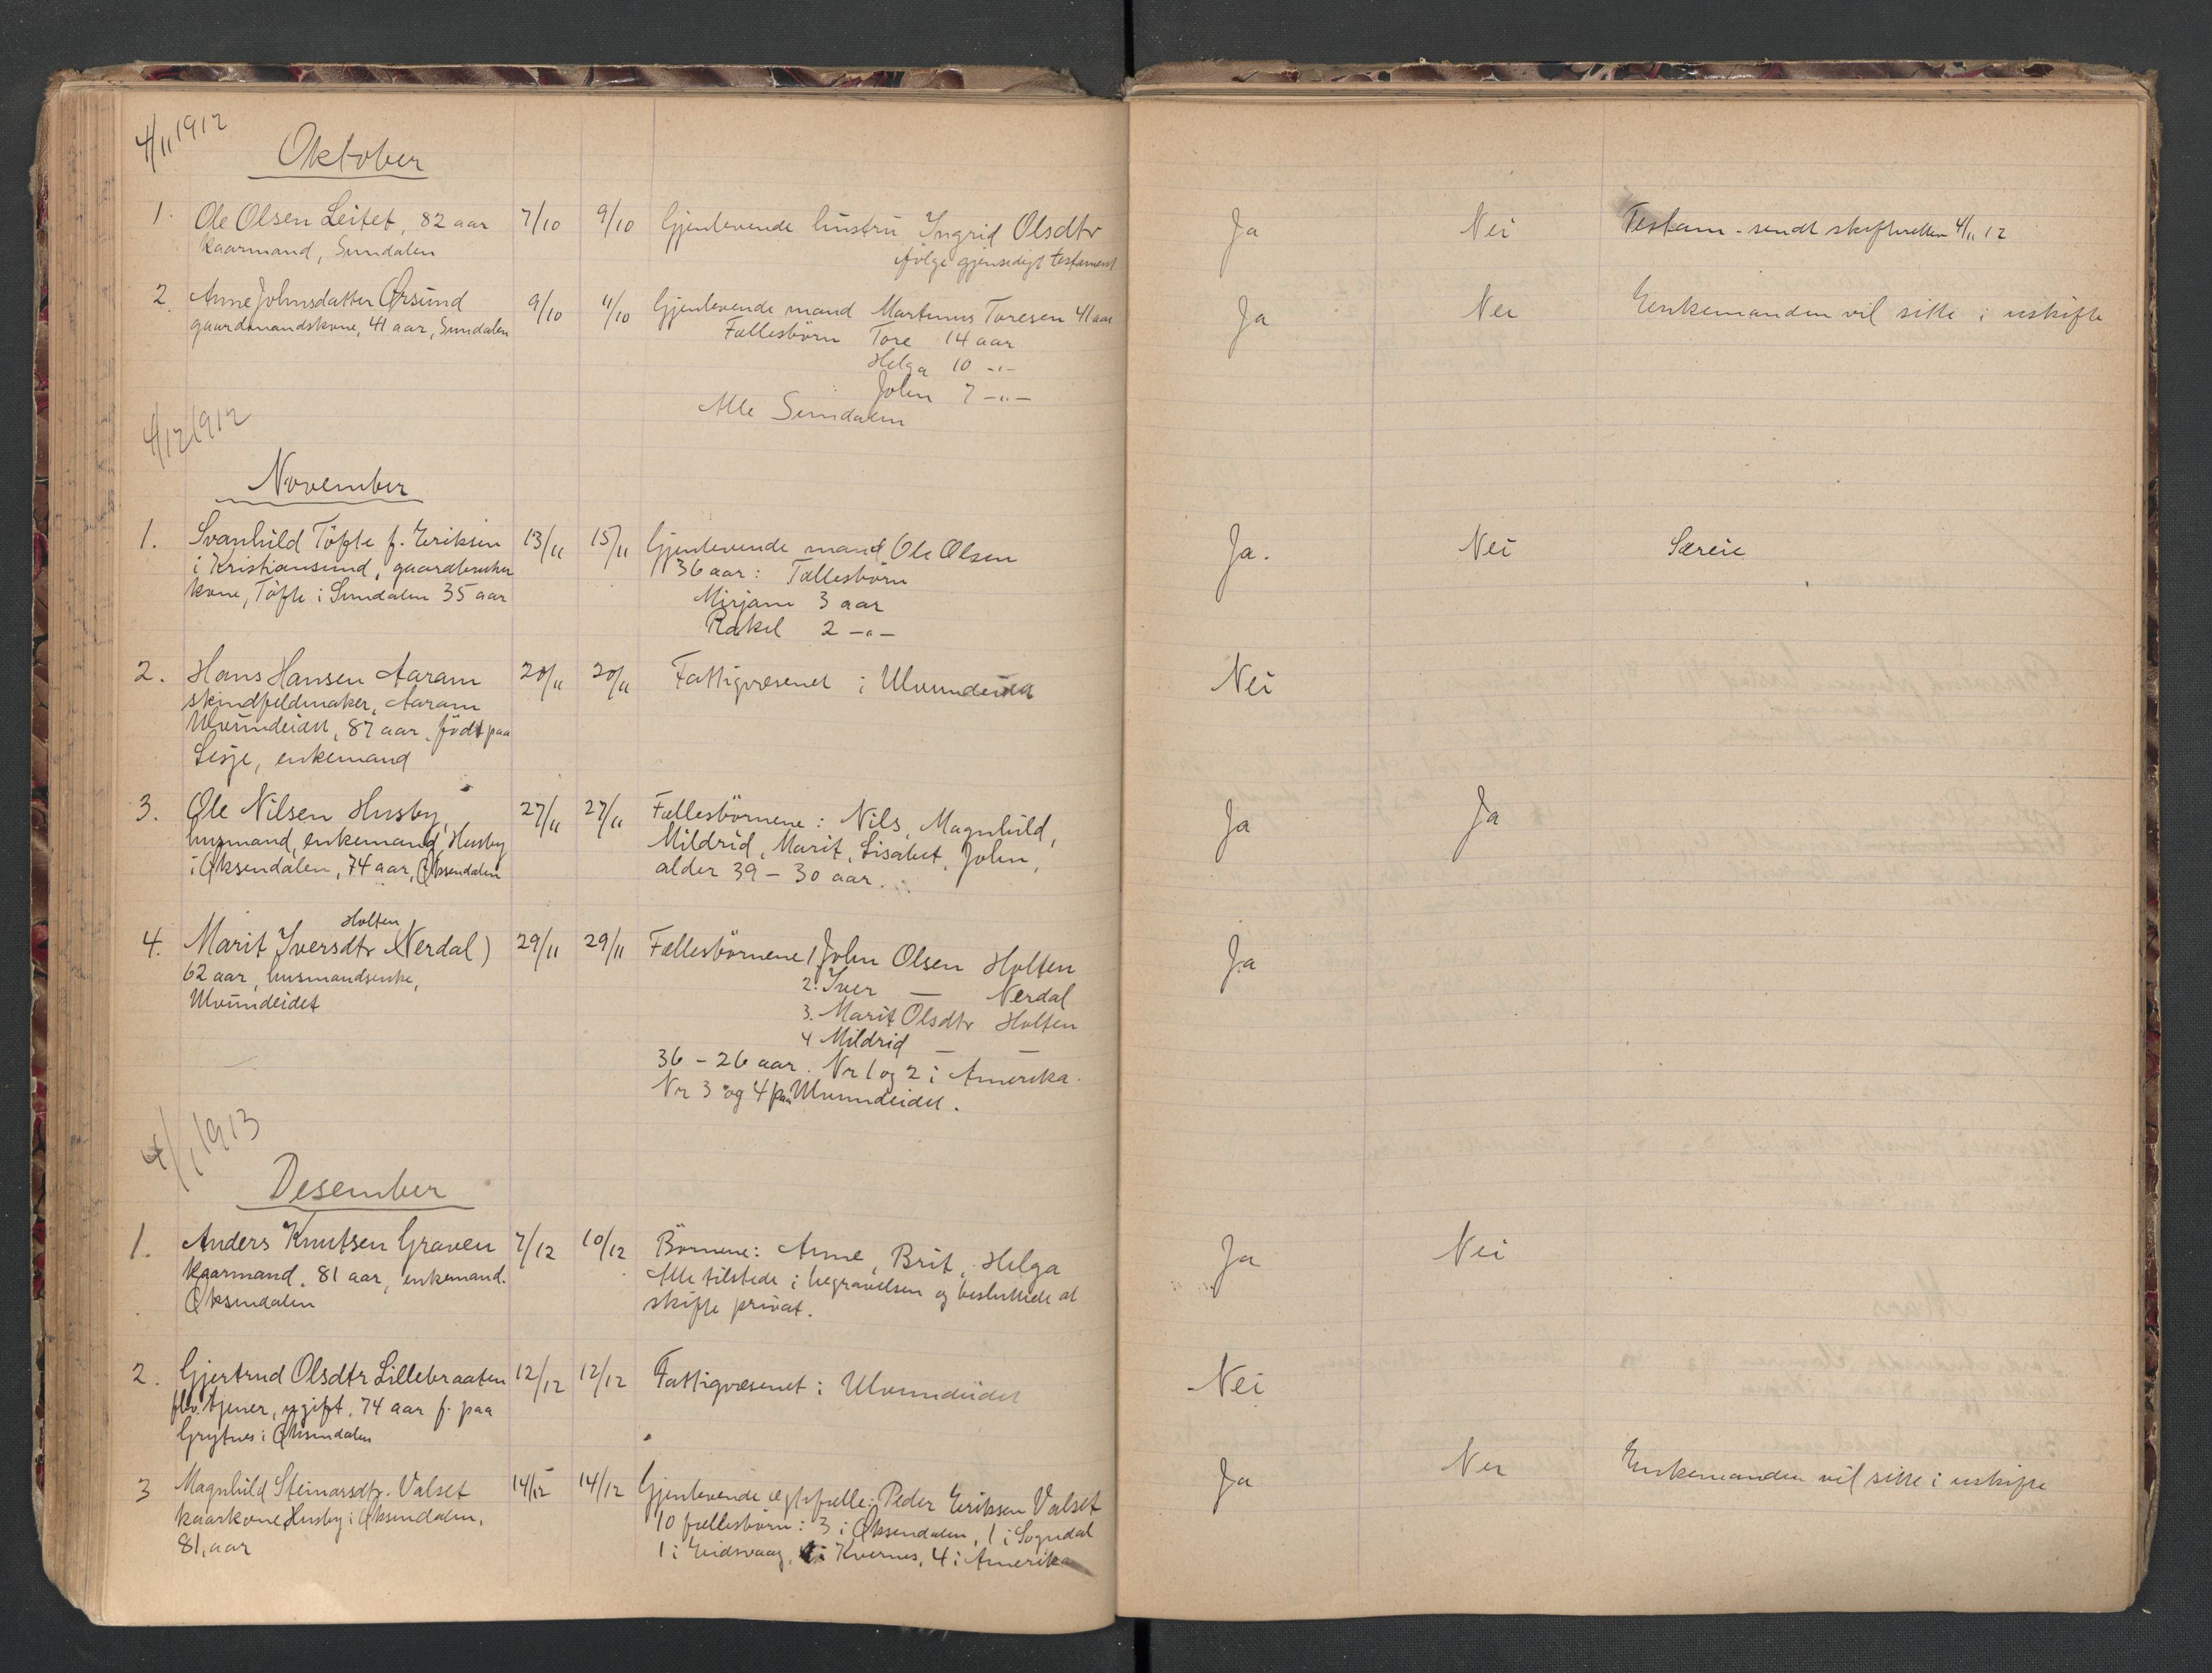 4/11 1912
Oktober
1. Ole Olsen Leitet, 82 aar 7/10 9/10 Gjenlevende hustru Ingrid Olsdtr Ja Nei Testam. sendt skifteretten 4/11 12
kaarmand, Sundalen ifölge gjensidigt testament
2. Anne Johnsdatter Örsund 9/10 11/10 Gjenlevende mand Martinus Toresen 41 aar Ja Nei Enkemanden vil sitte i uskifte
gaardmandskone, 41 aar, Sundalen Fællesbörn Tore 14 aar
Helga 10 -"-
John 7 -"-
Alle Sundalen
4/12 1912
November
1. Svanhild Töfte f. Eriksen 13/11 15/11 Gjenlevende mand Ole Olsen Ja. Nei Særeie
i Kristiansund, gaardbruker 36 aar: Fællesbörn
kone, Töfte i Sundalen 35 aar Mirjam 3 aar
Rakel 2 -"-
2. Hans Hansen Aaram 20/11 20/11 Fattigvæsenet i Ulvundeidet Nei
skindfeldmaker, Aaram
Ulvundeidet, 87 aar, födt paa
Lesje, enkemand
3. Ole Nilsen Husby, 27/11 27/11 Fællesbörnene: Nils, Magnhild, Ja Ja
husmand, enkemand, Husby Mildrid, Marit, Lisabet, John,
i Öksendalen, 74 aar, Öksendalen alder 39 – 30 aar.
Holten
4. Marit Iversdtr (Nerdal) 29/11 29/11 Fællesbörnene 1 John Olsen Holten Ja
62 aar, husmandsenke, 2. Iver — Nerdal
Ulvundeidet 3. Marit Olsdtr Holten
4 Mildrid — —
36 – 26 aar. Nr 1 og 2 i Amerika.
Nr 3 og 4 paa Ulvundeidet.
4/1 1913
Desember
1. Anders Knutsen Graven 7/12 10/12 Börnene: Anne, Brit, Helga Ja Nei
kaarmand, 81 aar, enkemand. Alle tilstede i begravelsen og besluttede at
Öksendalen skifte privat.
2. Gjertrud Olsdtr Lillebraaten 12/12 12/12 Fattigvæsenet i Ulvundeidet Nei
flv. tjener, ugift, 74 aar f. paa
Grytnes i Öksendalen
3 Magnhild Steinarsdtr. Valset 14/12 14/12 Gjenlevende ægtefælle: Peder Eriksen Valset Ja Nei Enkemanden vil sitte i uskifte
kaarkone Husby i Öksendalen, 10 fællesbörn: 3 i Öksendalen, 1 i Sogndal
81, aar 1 i Eidsvaag, 1 i Kvernes, 4 i Amerika